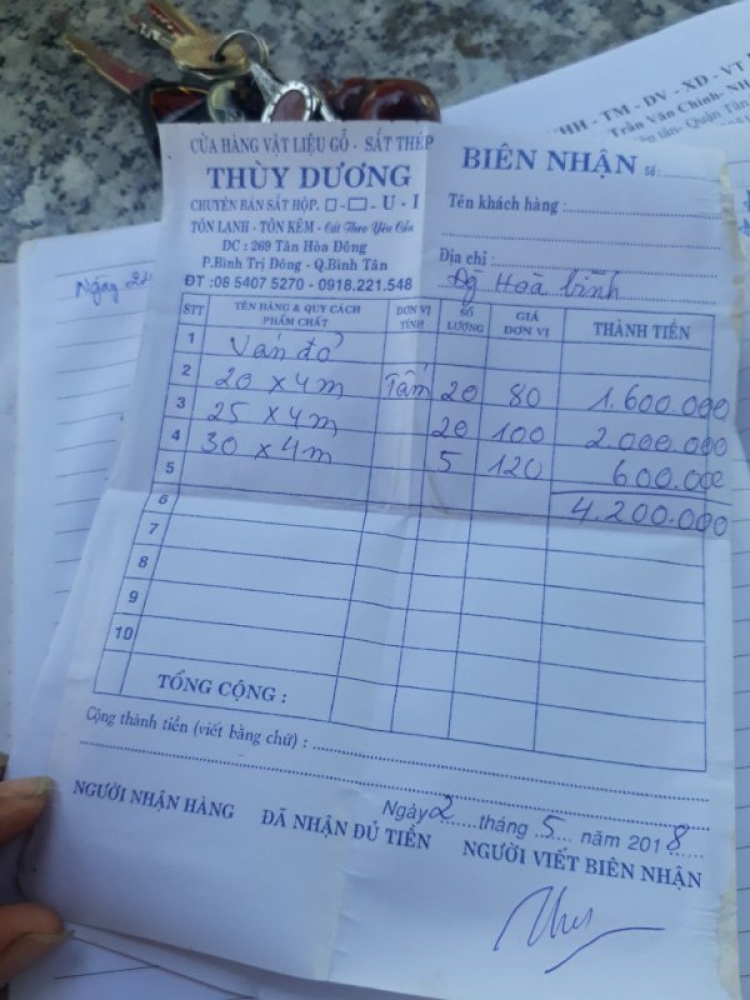 HH - TM - DV - XD - VT
Trần Văn Chính- NH
Quận Tân
CỬA HÀNG VẬT LIỆU GỖ - SẮT THÉP
THÙY DƯƠNG
CHUYÊN BÁN SẮT HỘP. □ - □ - U - I
TÔN LẠNH - TÔN KẼM - Cắt Theo Yêu Cầu
DC : 269 Tân Hòa Đông
P.Bình Trị Đông - Q.Bình Tân
ĐT :08 5407 5270 - 0918.221.548
BIÊN NHẬN Số :
Tên khách hàng :
Địa chỉ :
Hoà bình
Ngày 22
STT TÊN HÀNG & QUY CÁCH PHẨM CHẤT ĐƠN VỊ TÍNH SỐ LƯỢNG GIÁ ĐƠN VỊ THÀNH TIỀN
1 Ván đỏ
2 20 x 4m Tấm 20 80 1.600.000
3 25 x 4m 20 100 2.000.000
4 30 x 4m 5 120 600.000
5 4.200.000
6
7
8
9
10
TỔNG CỘNG :
Cộng thành tiền (viết bằng chữ) :
Ngày 2 tháng 5 năm 2018
NGƯỜI NHẬN HÀNG ĐÃ NHẬN ĐỦ TIỀN NGƯỜI VIẾT BIÊN NHẬN